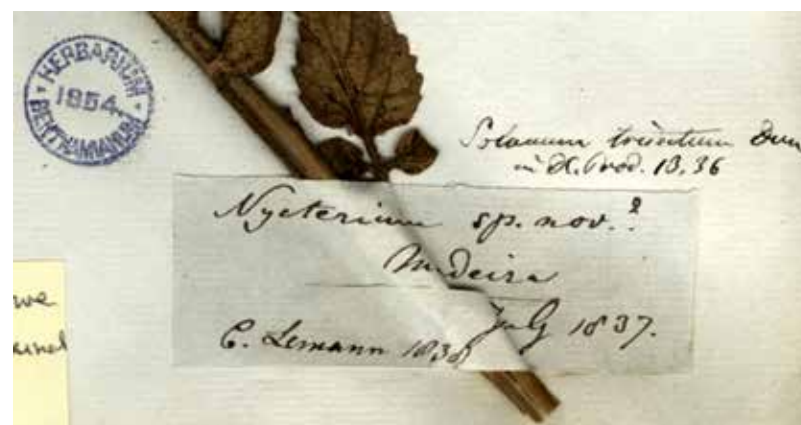 HERBARIUM
1854.
BENTHAMIANUM
Solanum trisectum Dun
in DC. Prod. 13. 36
Nycterium sp. nov.?
Madeira
July 1837.
C. Lemann 1838